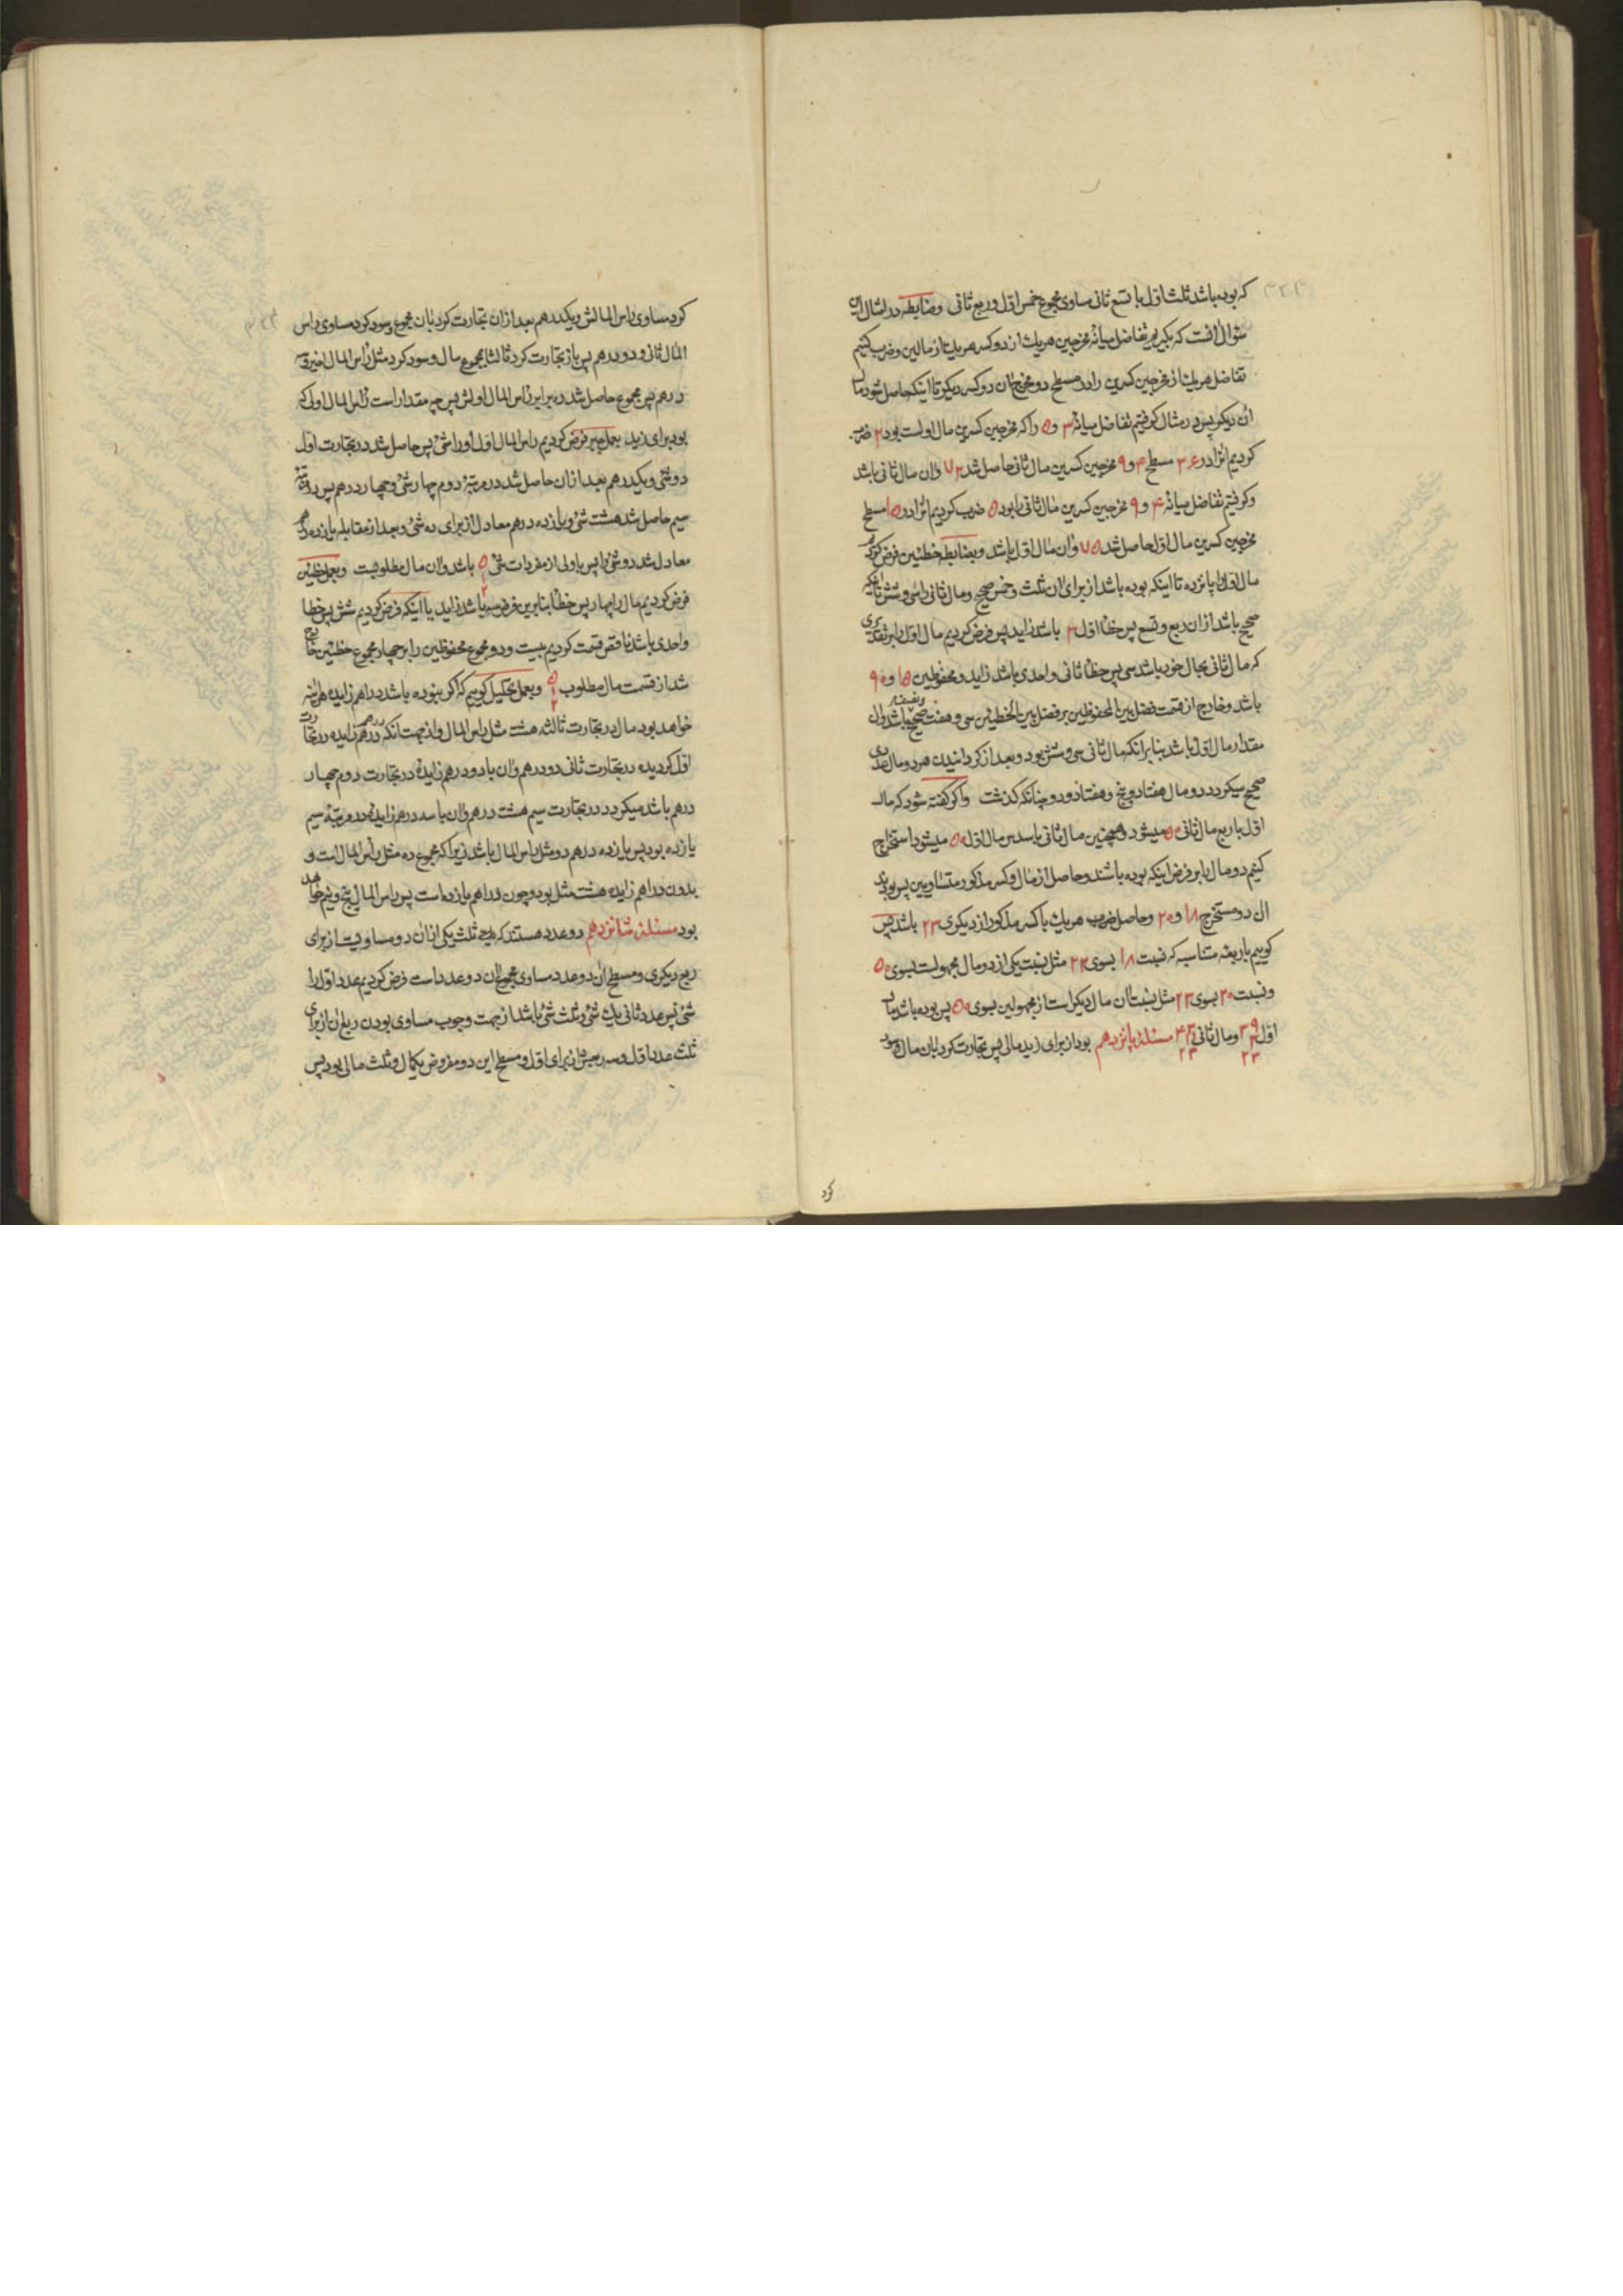 که بوده باشد ثلث اول با تسع ثانی مساوی مجموع خمس اول و ربع ثانی وضابطه در امثال این
سؤال آنست که بکیریم تفاضل میانهٔ مخرجین هریك از دو کسر هریك از مالین وضرب کنیم
تفاضل هریك از مخرجین کسرین را در مسطح دو مخرج ان دو کسر دیکر تا اینکه حاصل شود مال
ان دیکر پس در مثال کرفتیم تفاضل میانهٔ ۳ و ۵ را که مخرجین کسرین مال اولست بود ۲ ضرب
کردیم انرا در ۳۶ مسطح ۴ و ۹ مخرجین کسرین مال ثانی حاصل شد ۷۲ وان مال ثانی باشد
وکرفتیم تفاضل میانهٔ ۴ و ۹ مخرجین کسرین مال ثانی را بود ۵ ضرب کردیم انرا در ۱۵ مسطح
مخرجین کسرین مال اول حاصل شد ۷۵ وان مال اول باشد وبضابطه خطئین فرض کردیم
مال اول را پانزده تا اینکه بوده باشد از برای ان ثلث و خمس صحیح ومال ثانی را سی وشش تا اینکه
صحیح باشد از ان ربع و تسع پس خطأ اول ۳ باشد زاید پس فرض کردیم مال اول را بر تقدیری
که مال ثانی بحال خود باشد سی پس خطأ ثانی واحدی باشد زاید و محفوظین ۱۵ و ۹۰
باشد وخارج از قسمت فضل بین المحفوظین بر فضل بین الخطئین سی وهفت صحیح ونصف باشد وان
مقدار مال اول باشد بنابر انکه مال ثانی سی وشش بود وبعد از کردانیدن هر دو مال عددی
صحیح میکردد دو مال هفتاد وپنج وهفتاد ودو چنانکه کذشت واکر کفته شود که مال
اول با ربع مال ثانی ۵۰ میشود وهمچنین مال ثانی با سدس مال اول ۵۰ میشود استخراج
کنیم دو مال را بر فرض اینکه بوده باشند وحاصل از مال وکسر مذکور متساویین پس بودند
ان دو مستخرج ۱۸ و ۲۰ وحاصل ضرب هریك با کسر مذکور از دیکری ۲۳ باشد پس
کوییم باربعهٔ متناسبه که نسبت ۱۸ بسوی ۲۳ مثل نسبت یکی از دو مال مجهولست بسوی ۵۰
ونسبت ۲۰ بسوی ۲۳ مثل نسبت ان مال دیکر است از مجهولین بسوی ۵۰ پس بوده باشد مال
اول ۳۹ ۳ ۲۳ ومال ثانی ۴۳ ۲۳ مسئلهٔ پانزدهم بود از برای زید مالی پس تجارت کرد بان مال وسود
کرد
کرد مساوی راس المالش ویکدرهم بعد از ان تجارت کرد بان مجموع وسود کرد مساوی راس
المال ثانی ودو درهم پس باز تجارت کرد ثالثا بمجموع مال وسود کرد مثل راس المال اخیر وسه
درهم پس مجموع حاصل شد ده برابر راس المال اولش پس چه مقدار است راس المال اولی که
بود برای زید بعمل جبر فرض کردیم راس المال اول او را شئ پس حاصل شد در تجارت اول
دو شئ ویکدرهم بعد از ان حاصل شد در مرتبهٔ دوم چهار شئ وچهار درهم پس در مرتبهٔ
سیم حاصل شد هشت شئ ویازده درهم معادل از برای ده شئ وبعد از مقابله یازده درهم
معادل شد دو شئ را پس باولی از مفردات شئ ۵ ۱ ۲ باشد وان مال مطلوبست وبعمل خطئین
فرض کردیم مال را چهار پس خطأ بنابرین فرض سه باشد زاید یا اینکه فرض کردیم شش پس خطا
واحدی باشد ناقص قسمت کردیم بیست ودو مجموع محفوظین را بر چهار مجموع خطئین خارج
شد از قسمت مال مطلوب ۵ ۱ ۲ وبعمل تحلیل کوییم که اکر نبوده باشد دراهم زایده هراینه
خواهد بود مال در تجارت ثالثه هشت مثل راس المال واز جهت انکه درهم زایده در تجارت
اول کردیده در تجارت ثانی دو درهم وان با دو درهم زایده در تجارت دوم چهار
درهم باشد میکردد در تجارت سیم هشت درهم وان با سه درهم زایده در مرتبهٔ سیم
یازده بود پس یازده درهم دو مثل راس المال باشد زیرا که مجموع ده مثل راس المال است و
بدون دراهم زایده هشت مثل بود وچون دراهم یازده است پس راس المال پنج ونیم خواهد
بود مسئلهٔ شانزدهم دو عدد هستند که ثلث یکی از ان دو مساویست از برای
ربع دیکری ومسطح ان دو عدد مساوی مجموع ان دو عدد است فرض کردیم عدد اول را
شئ پس عدد ثانی یك شئ وثلث شئ باشد از جهت وجوب مساوی بودن ربع ان از برای
ثلث عدد اول وسه ربعش از برای اول ومسطح این دو مفروض یکمال وثلث مالی بود پس